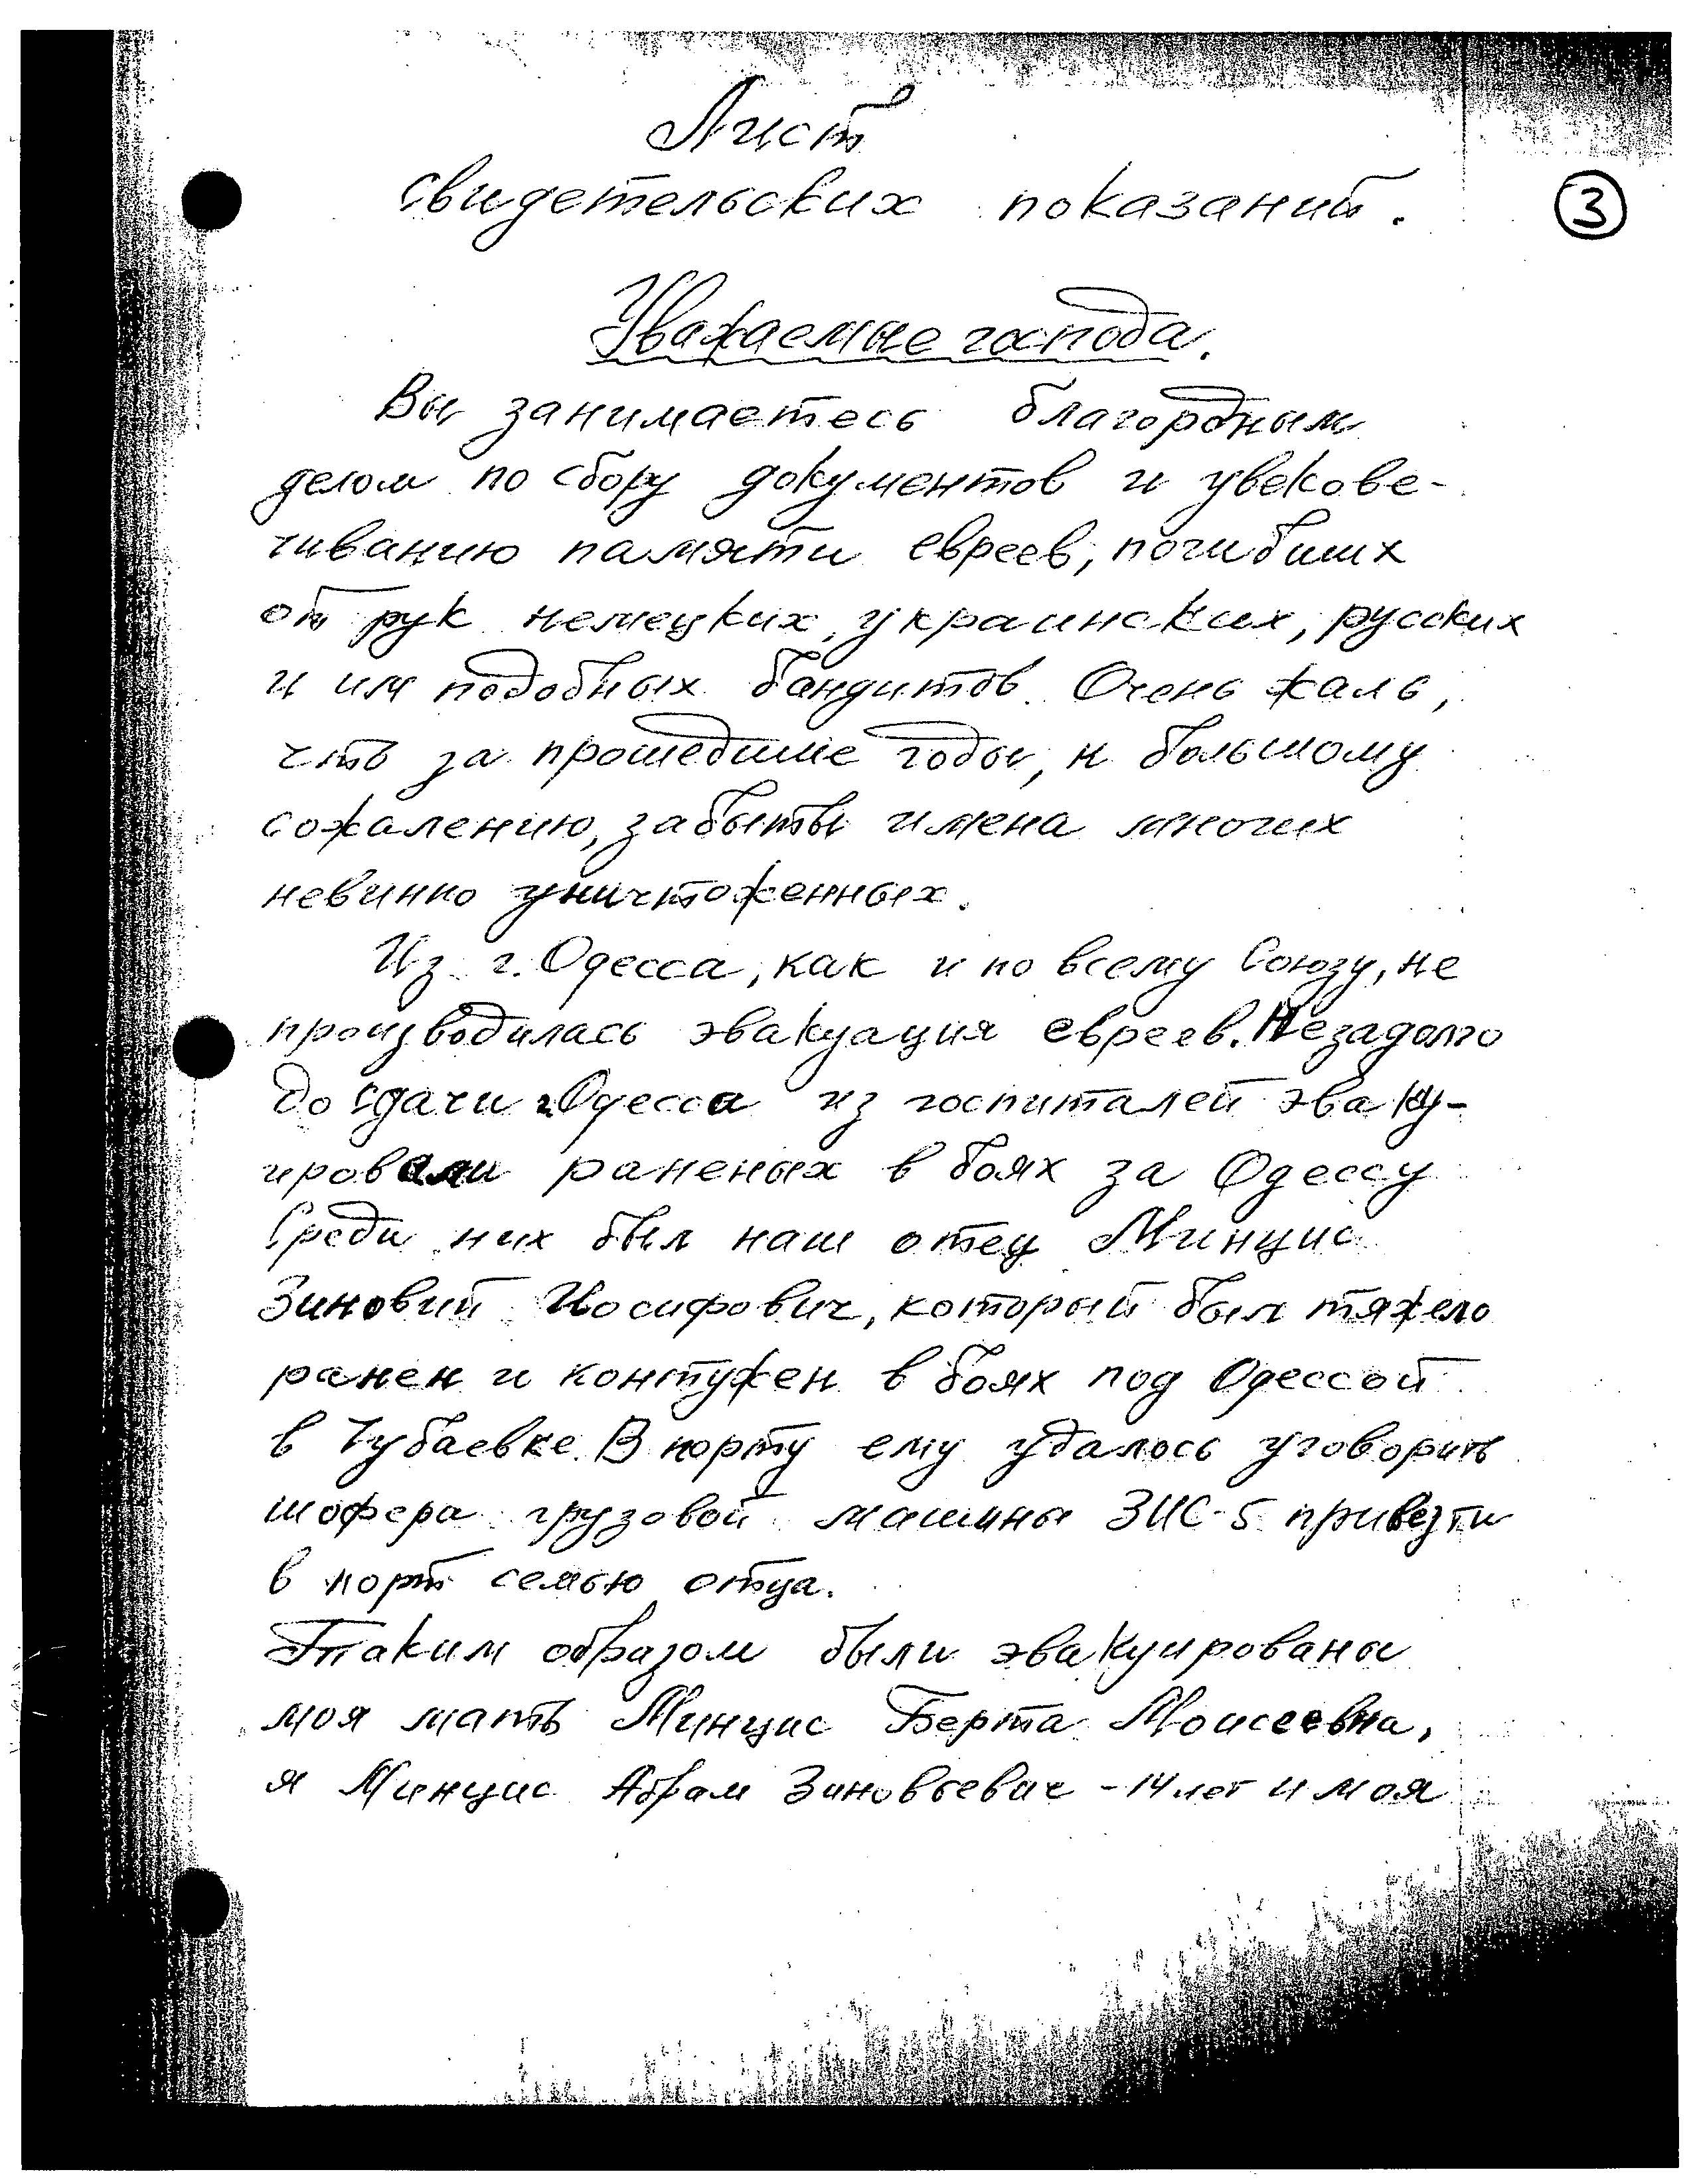 Лист
свидетельских показаний.
3
Уважаемые господа.
Вы занимаетесь благородным
делом по сбору документов и увекове-
чиванию памяти евреев, погибших
от рук немецких, украинских, русских
и им подобных бандитов. Очень жаль,
что за прошедшие годы, к большому
сожалению, забыты имена многих
невинно уничтоженных.
Из г. Одесса, как и по всему Союзу, не
производилась эвакуация евреев. Незадолго
до сдачи г. Одесса из госпиталей эваку-
ировали раненых в боях за Одессу
Среди них был наш отец Минцис
Зиновий Иосифович, который был тяжело
ранен и контужен в боях под Одессой
в Чубаевке. В порту ему удалось уговорить
шофера грузовой машины ЗИС-5 привезти
в порт семью отца.
Таким образом были эвакуированы
моя мать Минцис Берта Моисеевна,
я Минцис Абрам Зиновьевич - 14 лет и моя